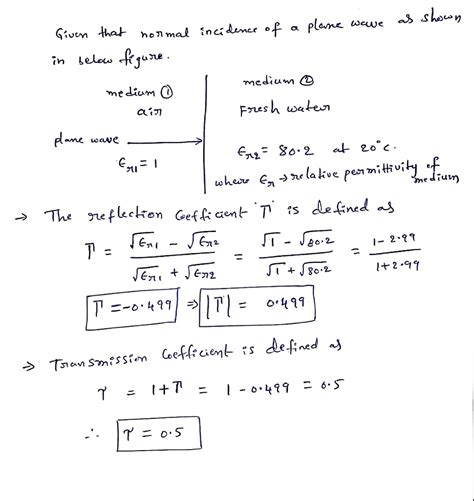 Given that normal incidence of a plane wave as shown
in below figure.
medium ①
air
medium ②
Fresh water
plane wave →
Єr1 = 1
Єr2 = 80.2 at 20°c.
where Єr → relative permittivity of
medium
→ The reflection Coefficient 'Γ' is defined as
Γ = (√Єr1 - √Єr2) / (√Єr1 + √Єr2) = (√1 - √80.2) / (√1 + √80.2) = (1 - 2.99) / (1 + 2.99)
Γ = -0.499 ⇒ |Γ| = 0.499
→ Transmission Coefficient is defined as
τ = 1 + Γ = 1 - 0.499 = 0.5
∴ τ = 0.5